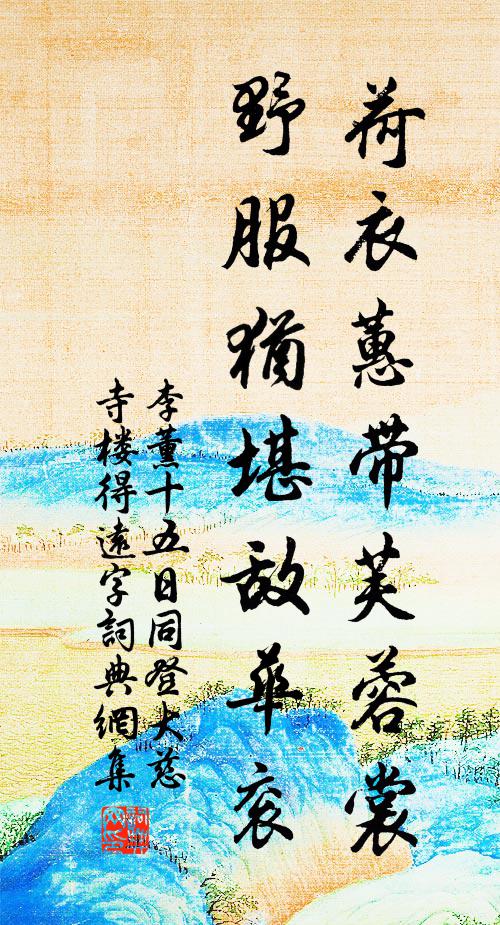 荷衣蕙带芙蓉裳
野服猶堪敌華衮
李薰十五日同登大慈
寺楼得遠字詞典網集